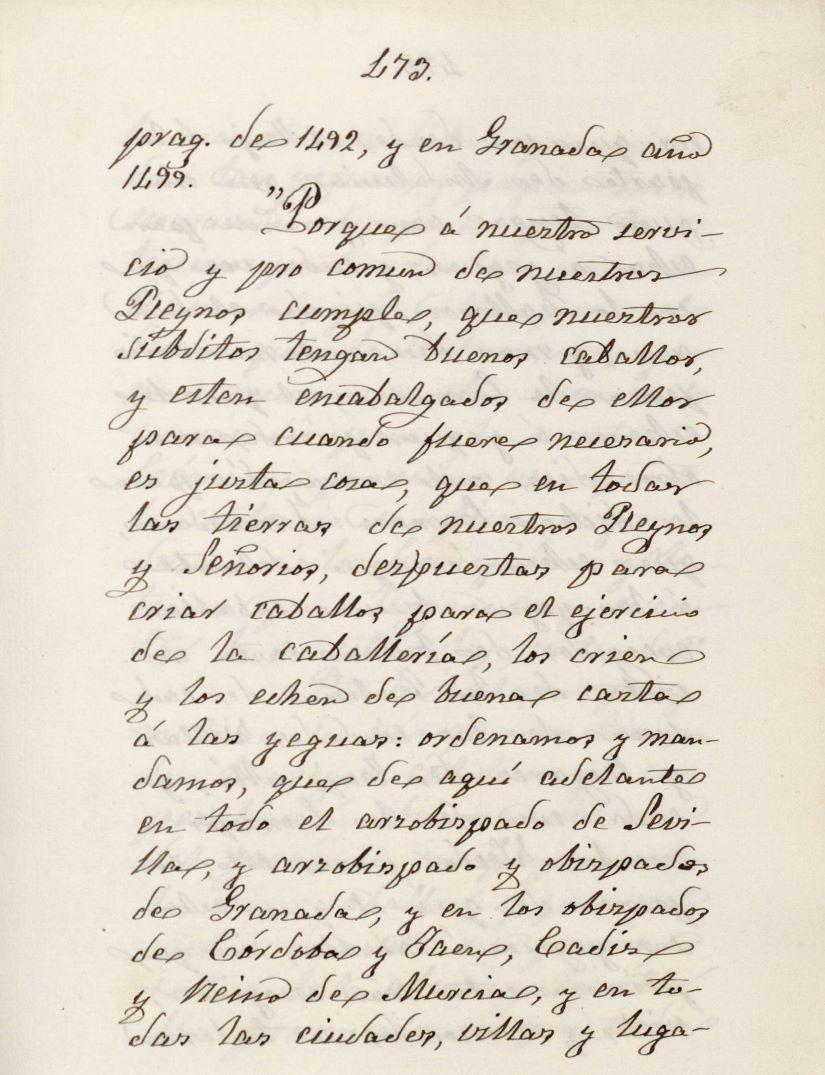 173.
prag. de 1492, y en Granada año
1499.
"Porque á nuestro servi-
cio y pro comun de nuestros
Reynos cumple, que nuestros
súbditos tengan buenos caballos,
y esten encabalgados de ellos
para cuando fuere necesario,
es justa cosa, que en todas
las tierras de nuestros Reynos
y Señorios, despuestas para
criar caballos para el ejercicio
de la caballería, los crien
y los echen de buena casta
á las yeguas: ordenamos y man-
damos, que de aquí adelante
en todo el arzobispado de Sevi-
lla, y arzobispado y obispados
de Granada, y en los obispados
de Córdoba y Jaen, Cadiz
y Reino de Murcia, y en to-
das las ciudades, villas y luga-